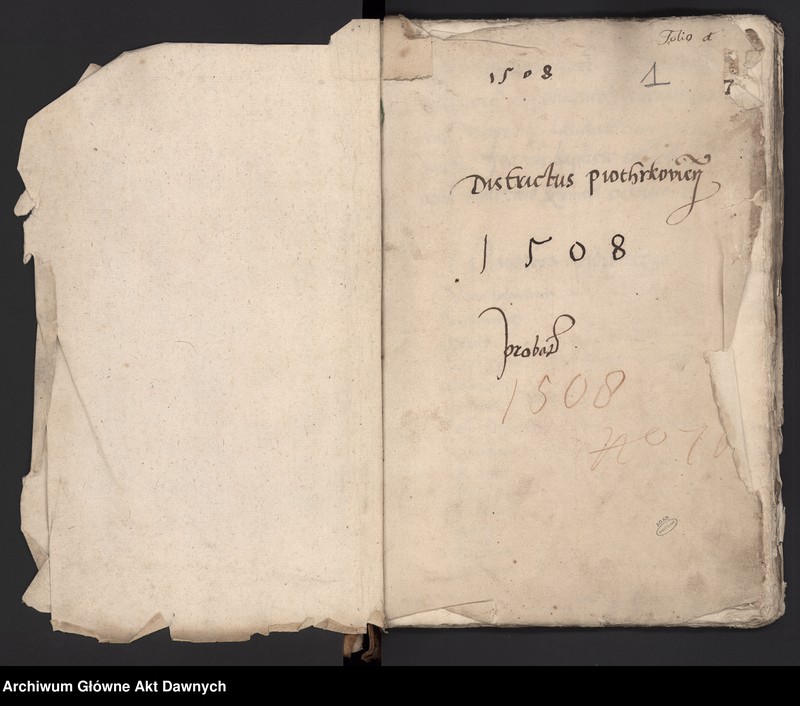 Folio
1508 1
7
Districtus piothrkovien
1508
probat
1508
No
Archiwum Główne Akt Dawnych